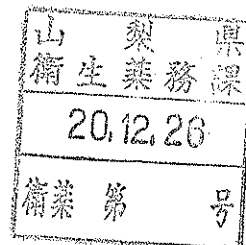 山梨県
衛生薬務課
20.12.26
衛薬第 号